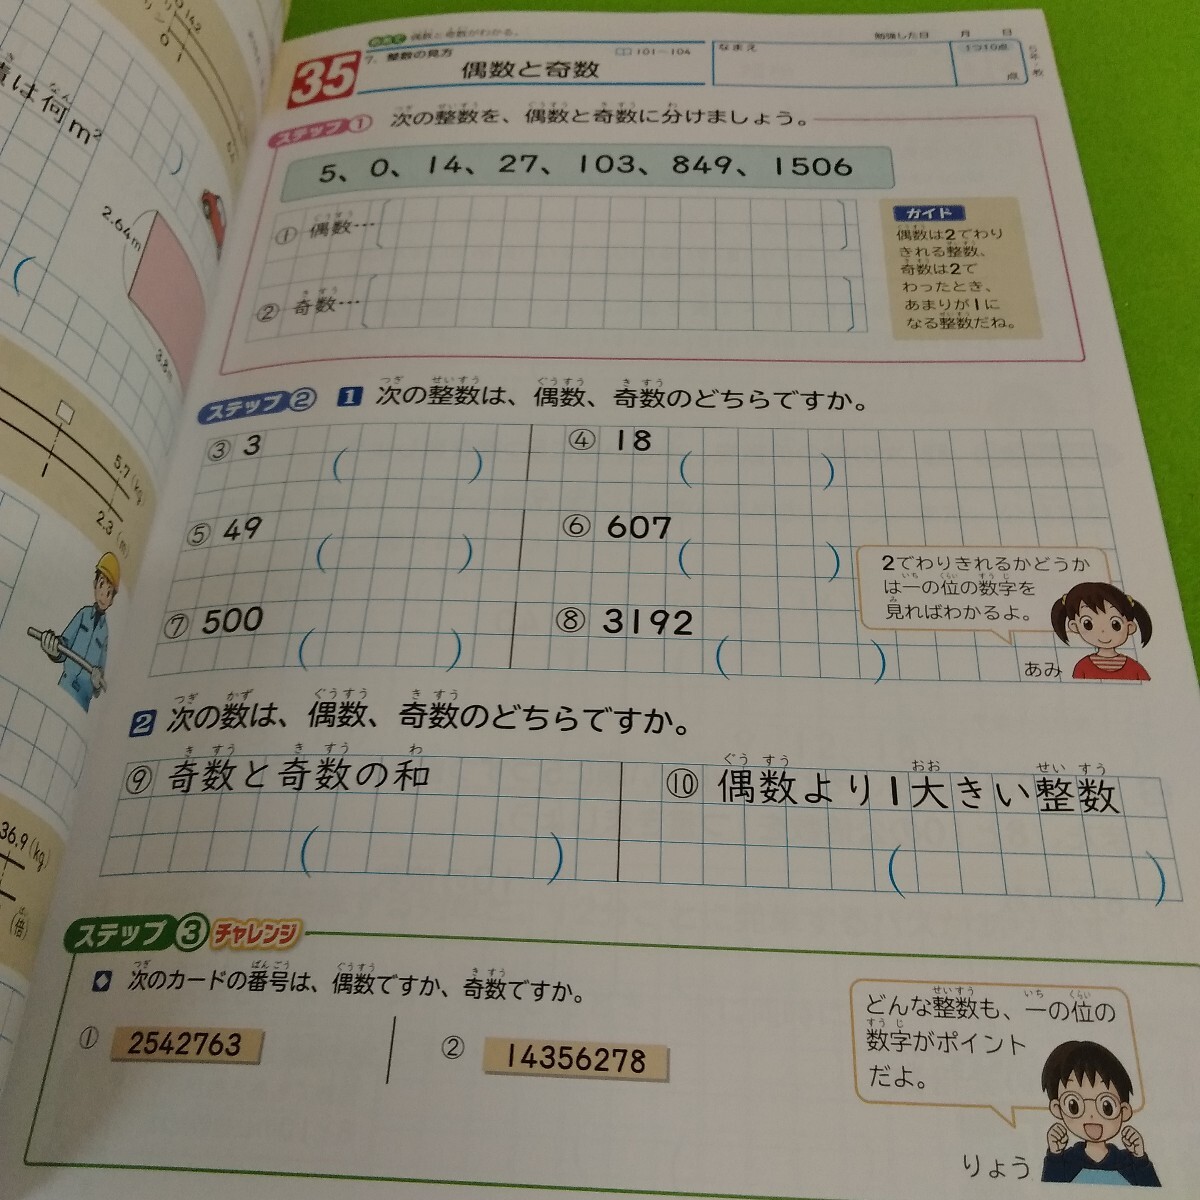 142
0
積は何m²
2.64m
3.8m
5.7(kg)
1
2.3(m)
36.9(kg)
(倍)
偶数と奇数がわかる。
勉強した日 月 日
35
7. 整数の見方
101〜104
偶数と奇数
なまえ
1つ10点
点
5年・教
ステップ① 次の整数を、偶数と奇数に分けましょう。
5、0、14、27、103、849、1506
① 偶数…
② 奇数…
ガイド
偶数は2でわり
きれる整数、
奇数は2で
わったとき、
あまりが1に
なる整数だね。
ステップ② 1 次の整数は、偶数、奇数のどちらですか。
③ 3 ( ) ④ 18 ( )
⑤ 49 ( ) ⑥ 607 ( )
⑦ 500 ( ) ⑧ 3192 ( )
2でわりきれるかどうか
は一の位の数字を
見ればわかるよ。
あみ
2 次の数は、偶数、奇数のどちらですか。
⑨ 奇数と奇数の和 ( )
⑩ 偶数より1大きい整数 ( )
ステップ③ チャレンジ
次のカードの番号は、偶数ですか、奇数ですか。
① 2542763
② 14356278
どんな整数も、一の位の
数字がポイント
だよ。
りょう